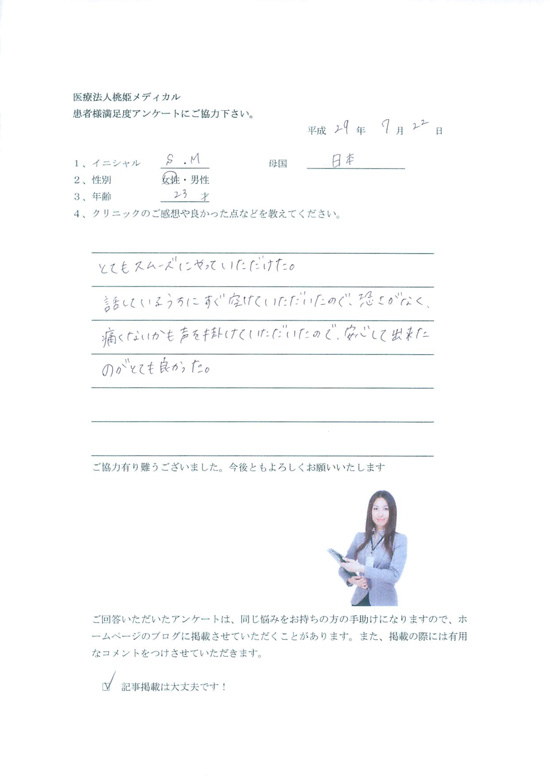 医療法人桃姫メディカル
患者様満足度アンケートにご協力下さい。
平成 29 年 7 月 22 日
1、イニシャル S.M 母国 日本
2、性別 女性・男性
3、年齢 23 才
4、クリニックのご感想や良かった点などを教えてください。
とてもスムーズにやっていただけた。
話しているうちにすぐ空けていただいたので、恐さがなく、
痛くないかも声を掛けていただいたので、安心して出来た
のがとても良かった。
ご協力有り難うございました。今後ともよろしくお願いいたします
ご回答いただいたアンケートは、同じ悩みをお持ちの方の手助けになりますので、ホ
ームページのブログに掲載させていただくことがあります。また、掲載の際には有用
なコメントをつけさせていただきます。
☑ 記事掲載は大丈夫です！